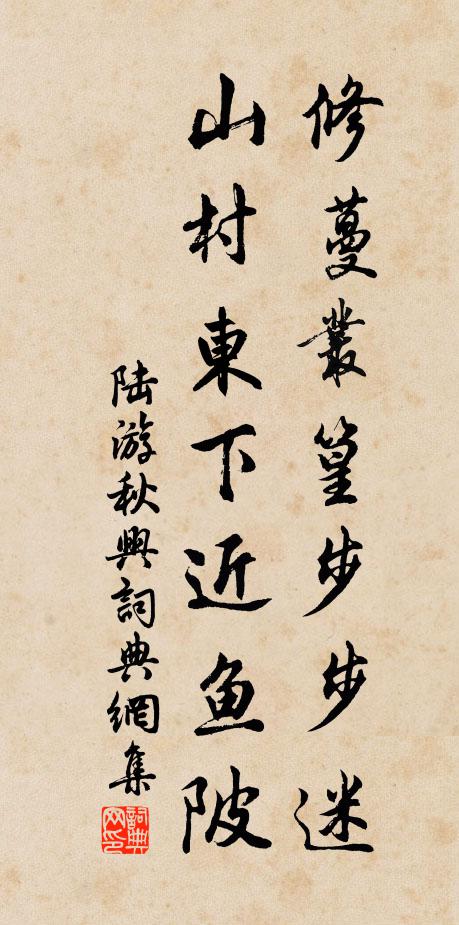 修蔓叢篁步步迷
山村東下近魚陂
陆游秋興詞典網集
詞典网印